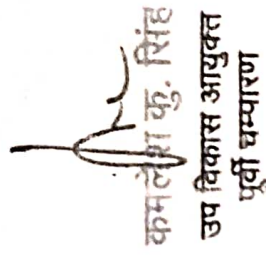 कमलेश कु. सिंह
उप विकास आयुक्त
पूर्वी चम्पारण